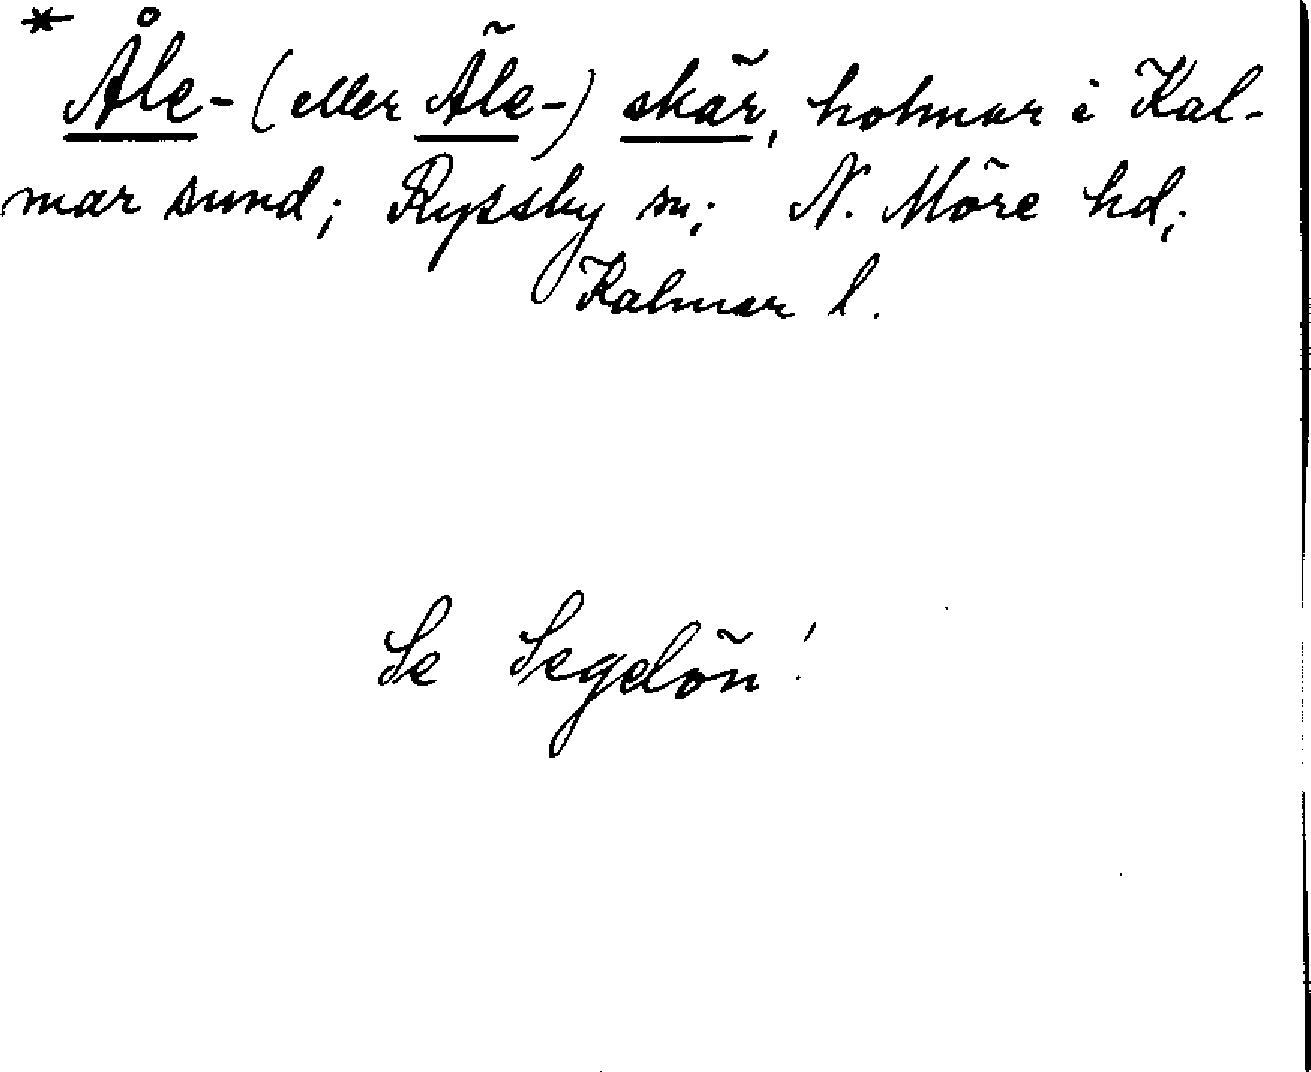 * Åle- (eller Äle-) skär, holmar i Kal-
mar sund; Ryssby sn; N. Möre hd;
Kalmar l.
Se Segelön!